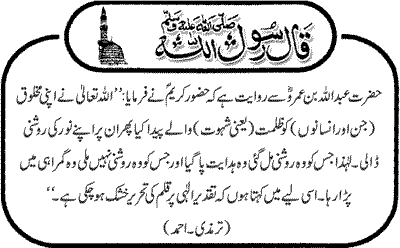 قال رسول اللہ صلی اللہ علیہ وسلم
حضرت عبداللہ بن عمروؓ سے روایت ہے کہ حضور کریمؐ نے فرمایا: ’’اللہ تعالیٰ نے اپنی مخلوق
(جن اور انسانوں) کو ظلمت (یعنی شہوت) والے پیدا کیا پھر ان پر اپنے نور کی روشنی
ڈالی۔ لہٰذا جس کو وہ روشنی مل گئی وہ ہدایت پا گیا اور جس کو وہ روشنی نہیں ملی وہ گمراہی میں
پڑا رہا۔ اسی لیے میں کہتا ہوں کہ تقدیر الٰہی پر قلم کی تحریر خشک ہو چکی ہے۔‘‘
(ترمذی۔ احمد)